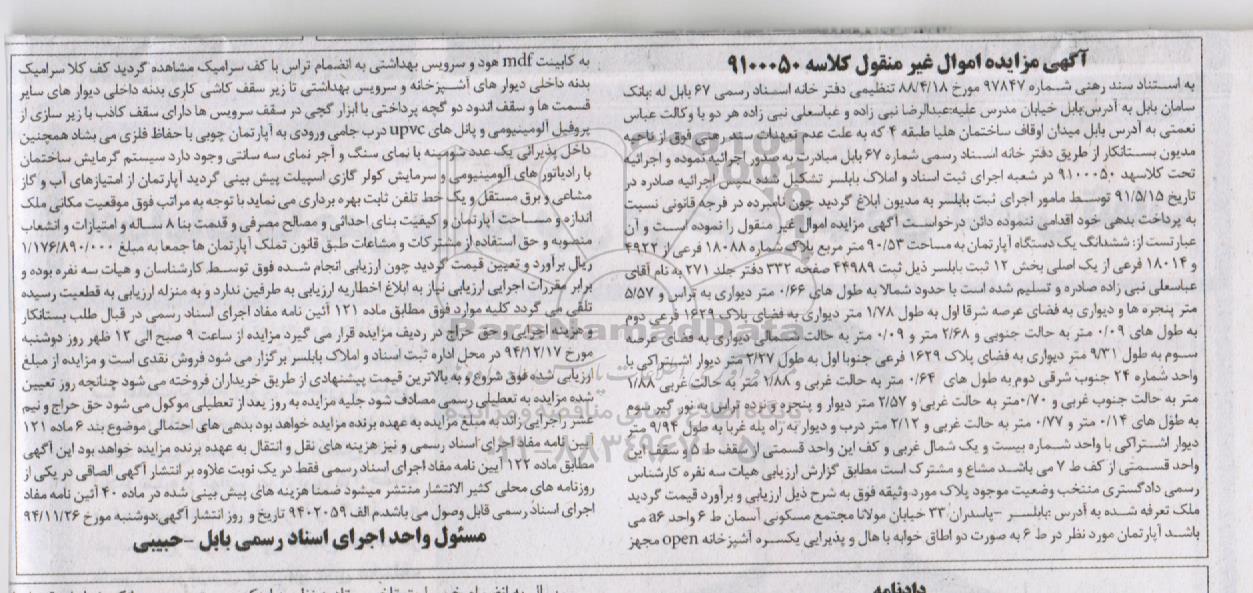 آگهی مزایده اموال غیر منقول کلاسه ۹۱۰۰۰۵۰
به استناد سند رهنی شماره ۹۷۸۴۷ مورخ ۸۸/۴/۱۸ تنظیمی دفتر خانه اسناد رسمی ۶۷ بابل له :بانک
سامان بابل به آدرس:بابل خیابان مدرس علیه:عبدالرضا نبی زاده و غباسعلی نبی زاده هر دو با وکالت عباس
نعمتی به آدرس بابل میدان اوقاف ساختمان هلیا طبقه ۴ که به علت عدم تعهدات سند رهنی فوق از ناحیه
مدیون بستانکار از طریق دفتر خانه اسناد رسمی شماره ۶۷ بابل مبادرت به صدور اجرائیه نموده و اجرائیه
تحت کلاسهد ۹۱۰۰۰۵۰ در شعبه اجرای ثبت اسناد و املاک بابلسر تشکیل و سپس اجرائیه صادره در
تاریخ ۹۱/۵/۱۵ توسط مامور اجرای ثبت بابلسر به مدیون ابلاغ گردید چون نامبرده در فرجه قانونی نسبت
به پرداخت بدهی خود اقدامی ننموده دائن درخواست آگهی مزایده اموال غیر منقول را نموده است و آن
عبارتست از: ششدانگ یک دستگاه آپارتمان به مساحت ۹۰/۵۳ متر مربع پلاک شماره ۱۸۰۸۸ فرعی از ۴۹۲۲
و ۱۸۰۱۴ فرعی از یک اصلی بخش ۱۲ ثبت بابلسر ذیل ثبت ۴۴۹۸۹ صفحه ۳۳۲ دفتر جلد ۲۷۱ به نام آقای
عباسعلی نبی زاده صادره و تسلیم شده است با حدود شمالا به طول های ۰/۶۶ متر دیواری به تراس و ۵/۵۷
متر پنجره ها و دیواری به فضای عرصه شرقا اول به طول ۱/۷۸ متر دیواری به فضای پلاک ۱۶۲۹ فرعی دوم
به طول های ۰/۰۹ متر به حالت جنوبی و ۲/۶۸ متر و ۰/۰۹ متر به حالت شمالی دیواری به فضای عرصه
سوم به طول ۹/۳۱ متر دیواری به فضای پلاک ۱۶۲۹ فرعی جنوبا اول به طول ۲/۲۷ متر دیوار اشتراکی با
واحد شماره ۲۴ جنوب شرقی دوم به طول های ۰/۶۴ متر به حالت غربی و ۱/۸۸ متر به حالت غربی ۱/۸۸
متر به حالت جنوب غربی و ۰/۷۰متر به حالت غربی و ۲/۵۷ متر دیوار و پنجره و نرده تراس به نور گیر سوم
به طول های ۰/۱۴ متر و ۰/۷۷ متر به حالت غربی و ۲/۱۲ متر درب و دیوار به راه پله غربا به طول ۹/۹۴ متر
دیوار اشتراکی با واحد شماره بیست و یک شمال غربی و کف این واحد قسمتی از سقف ط ۵ و سقف این
واحد قسمتی از کف ط ۷ می باشد مشاع و مشترک است مطابق گزارش ارزیابی هیات سه نفره کارشناس
رسمی دادگستری منتخب وضعیت موجود پلاک مورد وثیقه فوق به شرح ذیل ارزیابی و برآورد قیمت گردید
ملک تعرفه شده به آدرس :بابلسر –پاسدران ۳۳ خیابان مولانا مجتمع مسکونی آسمان ط ۶ واحد a۶ می
باشد آپارتمان مورد نظر در ط ۶ به صورت دو اطاق خوابه با هال و پذیرایی یکسره آشپزخانه open مجهز
به کابینت mdf هود و سرویس بهداشتی به انضمام تراس با کف سرامیک مشاهده گردید کف کلا سرامیک
بدنه داخلی دیوار های آشپزخانه و سرویس بهداشتی تا زیر سقف کاشی کاری بدنه داخلی دیوار های سایر
قسمت ها و سقف اندود دو گچه پرداختی با ابزار گچی در سقف سرویس ها دارای سقف کاذب با زیر سازی از
پروفیل آلومینیومی و پانل های upvc درب جامی ورودی به آپارتمان چوبی با حفاظ فلزی می بشاد همچنین
داخل پذیرائی یک عدد شومینه با نمای سنگ و آجر نمای سه سانتی وجود دارد سیستم گرمایش ساختمان
با رادیاتور های آلومینیومی و سرمایش کولر گازی اسپیلت پیش بینی گردید آپارتمان از امتیازهای آب و گاز
مشاعی و برق مستقل و یک خط تلفن ثابت بهره برداری می نماید با توجه به مراتب فوق موقعیت مکانی ملک
اندازه و مساحت آپارتمان و کیفیت بنای احداثی و مصالح مصرفی و قدمت بنا ۸ ساله و امتیازات و انشعاب
منصوبه و حق استفاده از مشترکات و مشاعات طبق قانون تملک آپارتمان ها جمعا به مبلغ ۱/۱۷۶/۸۹۰/۰۰۰
ریال برآورد و تعیین قیمت گردید چون ارزیابی انجام شده فوق توسط کارشناسان و هیات سه نفره بوده و
برابر مقررات اجرایی ارزیابی نیاز به ابلاغ اخطاریه ارزیابی به طرفین ندارد و به منزله ارزیابی به قطعیت رسیده
تلقی می گردد کلیه موارد فوق مطابق ماده ۱۲۱ آئین نامه مفاد اجرای اسناد رسمی در قبال طلب بستانکار
و هزینه اجرایی و حق حراج در ردیف مزایده قرار می گیرد مزایده از ساعت ۹ صبح الی ۱۲ ظهر روز دوشنبه
مورخ ۹۴/۱۲/۱۷ در محل اداره ثبت اسناد و املاک بابلسر برگزار می شود فروش نقدی است و مزایده از مبلغ
ارزیابی شده فوق شروع و به بالاترین قیمت پیشنهادی از طریق خریداران فروخته می شود چنانچه روز تعیین
شده مزایده به تعطیلی رسمی مصادف شود جلیه مزایده به روز بعد از تعطیلی موکول می شود حق حراج و نیم
عشر راجرایی زائد به مبلغ مزایده به عهده برنده مزایده خواهد بود بدهی های احتمالی موضوع بند ۶ ماده ۱۲۱
آیین نامه مفاد اجرای اسناد رسمی و نیز هزینه های نقل و انتقال به عهده برنده مزایده خواهد بود این آگهی
مطابق ماده ۱۲۲ آیین نامه مفاد اجرای اسناد رسمی فقط در یک نوبت علاوه بر انتشار آگهی الصاقی در یکی از
روزنامه های محلی کثیر الانتشار منتشر میشود ضمنا هزینه های پیش بینی شده در ماده ۴۰ آئین نامه مفاد
اجرای اسناد رسمی قابل وصول می باشدم الف ۹۴۰۲۰۵۹ تاریخ و روز انتشار آگهی:دوشنبه مورخ ۹۴/۱۱/۲۶
مسئول واحد اجرای اسناد رسمی بابل –حبیبی
ParsNamadData
پایگاه اطلاع رسانی مناقصه و مزایده
۰۲۱-۸۸۳۴۹۶۷۰
دادنامه